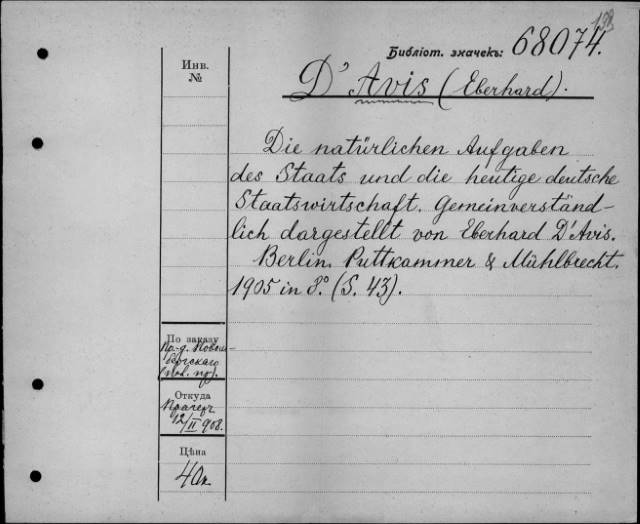 198
Библіот. значекъ: 68074.
Инв.
№
D'Avis (Eberhard).
Die natürlichen Aufgaben
des Staats und die heutige deutsche
Staatswirtschaft. Gemeinverständ-
lich dargestellt von Eberhard D'Avis.
Berlin. Puttkammer & Mühlbrecht.
1905 in 8.° (S. 43).
По заказу
Откуда
12/II 908.
Цѣна
40к